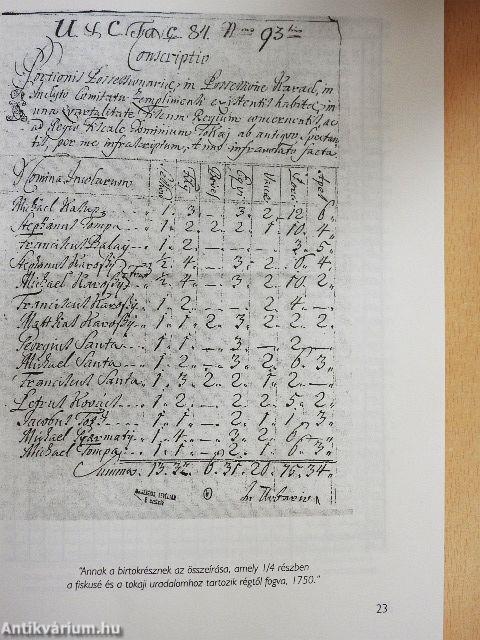 U et C Fasc. 84. Nro 93tius
Conscriptio
Portionis Possessionariæ, in Possessione Karad, in
Inclyto Comitatu Zempliniensi existentis habitæ, in
una quartalitate Fiscum Regium concernentis, ac
ad Regio Fiscale Dominium Tokaj ab antiquo Spectan
tis, per me infrascriptum, Anno infranotato facta
Nomina Incolarum
Michael Kasup 1. 3. – 3. 2. 12. 6.
Stephanus Pompa 1. 2. 2. 2. 1. 10. 4.
Franciscus Balay 1. 2. – – – 3. 5.
Stephanus Karossy 1/2 4. – 3. 2. 6. 4.
Michael Karossy 1/2 4. – 3. 2. 10. 2.
Franciscus Karossy 1. 2. – – 2. 4. –
Matthias Karossy 1. 1. 2. 3. 2. 2. 2.
Georgius Santa 1. 1. – 3. – 2. –
Michael Santa 1. 2. – 3. 2. 6. 3.
Franciscus Santa 1. 3. 2. 2. 1. 2. –
Petrus Kovács 1. 2. – 2. 2. 5. 2.
Jacobus Tóth 1. 1. – 2. 1. 1. 3.
Michael Gyarmaty 1. 4. – 3. 2. 6.
Michael Pompa 1. 1. – 2. 1. 6. 3.
Summa 13. 32. 6. 31. 20. 75. 34.
"Annak a birtokrésznek az összeírása, amely 1/4 részben
a fiskusé és a tokaji uradalomhoz tartozik régtől fogva, 1750."
23
Antikvárium.hu